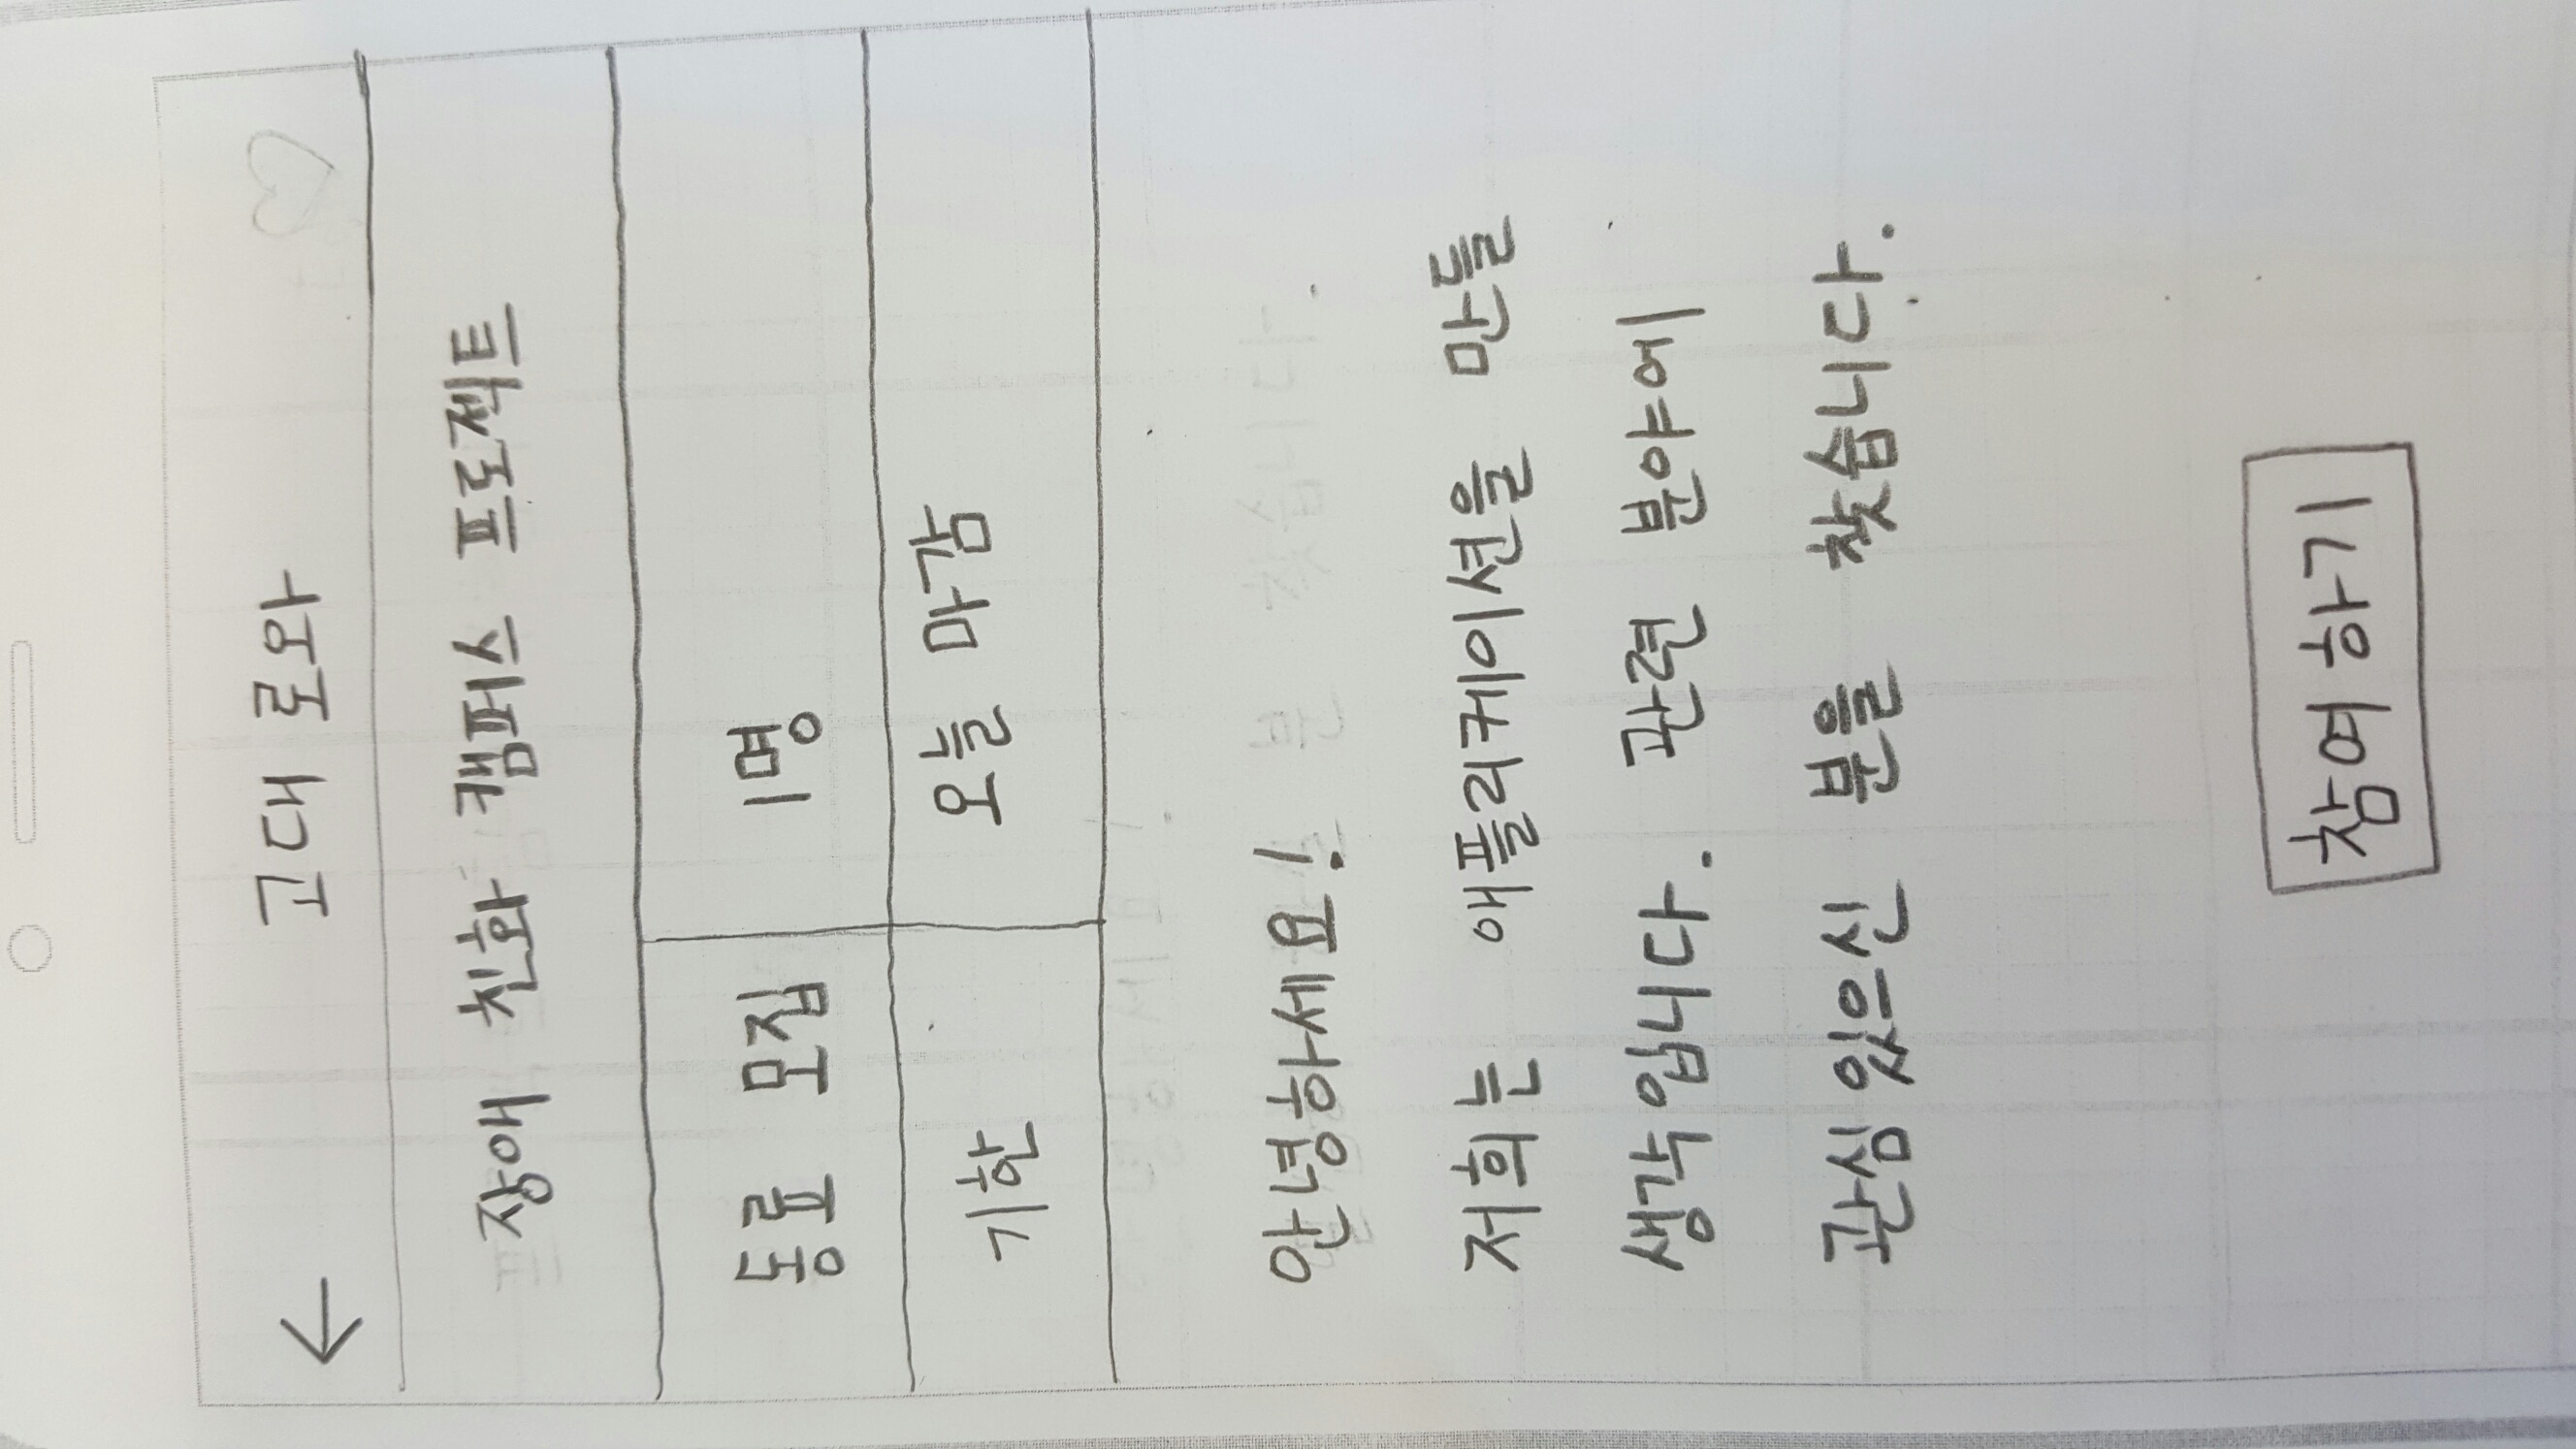 고대 로와
장애 친화 캠퍼스 프로젝트
동료 모집 1명
기한 오늘 마감
안녕하세요!
저희는 애플리케이션을 만들
생각입니다. 관련 분야에
관심있으신 분을 찾습니다.
참여하기